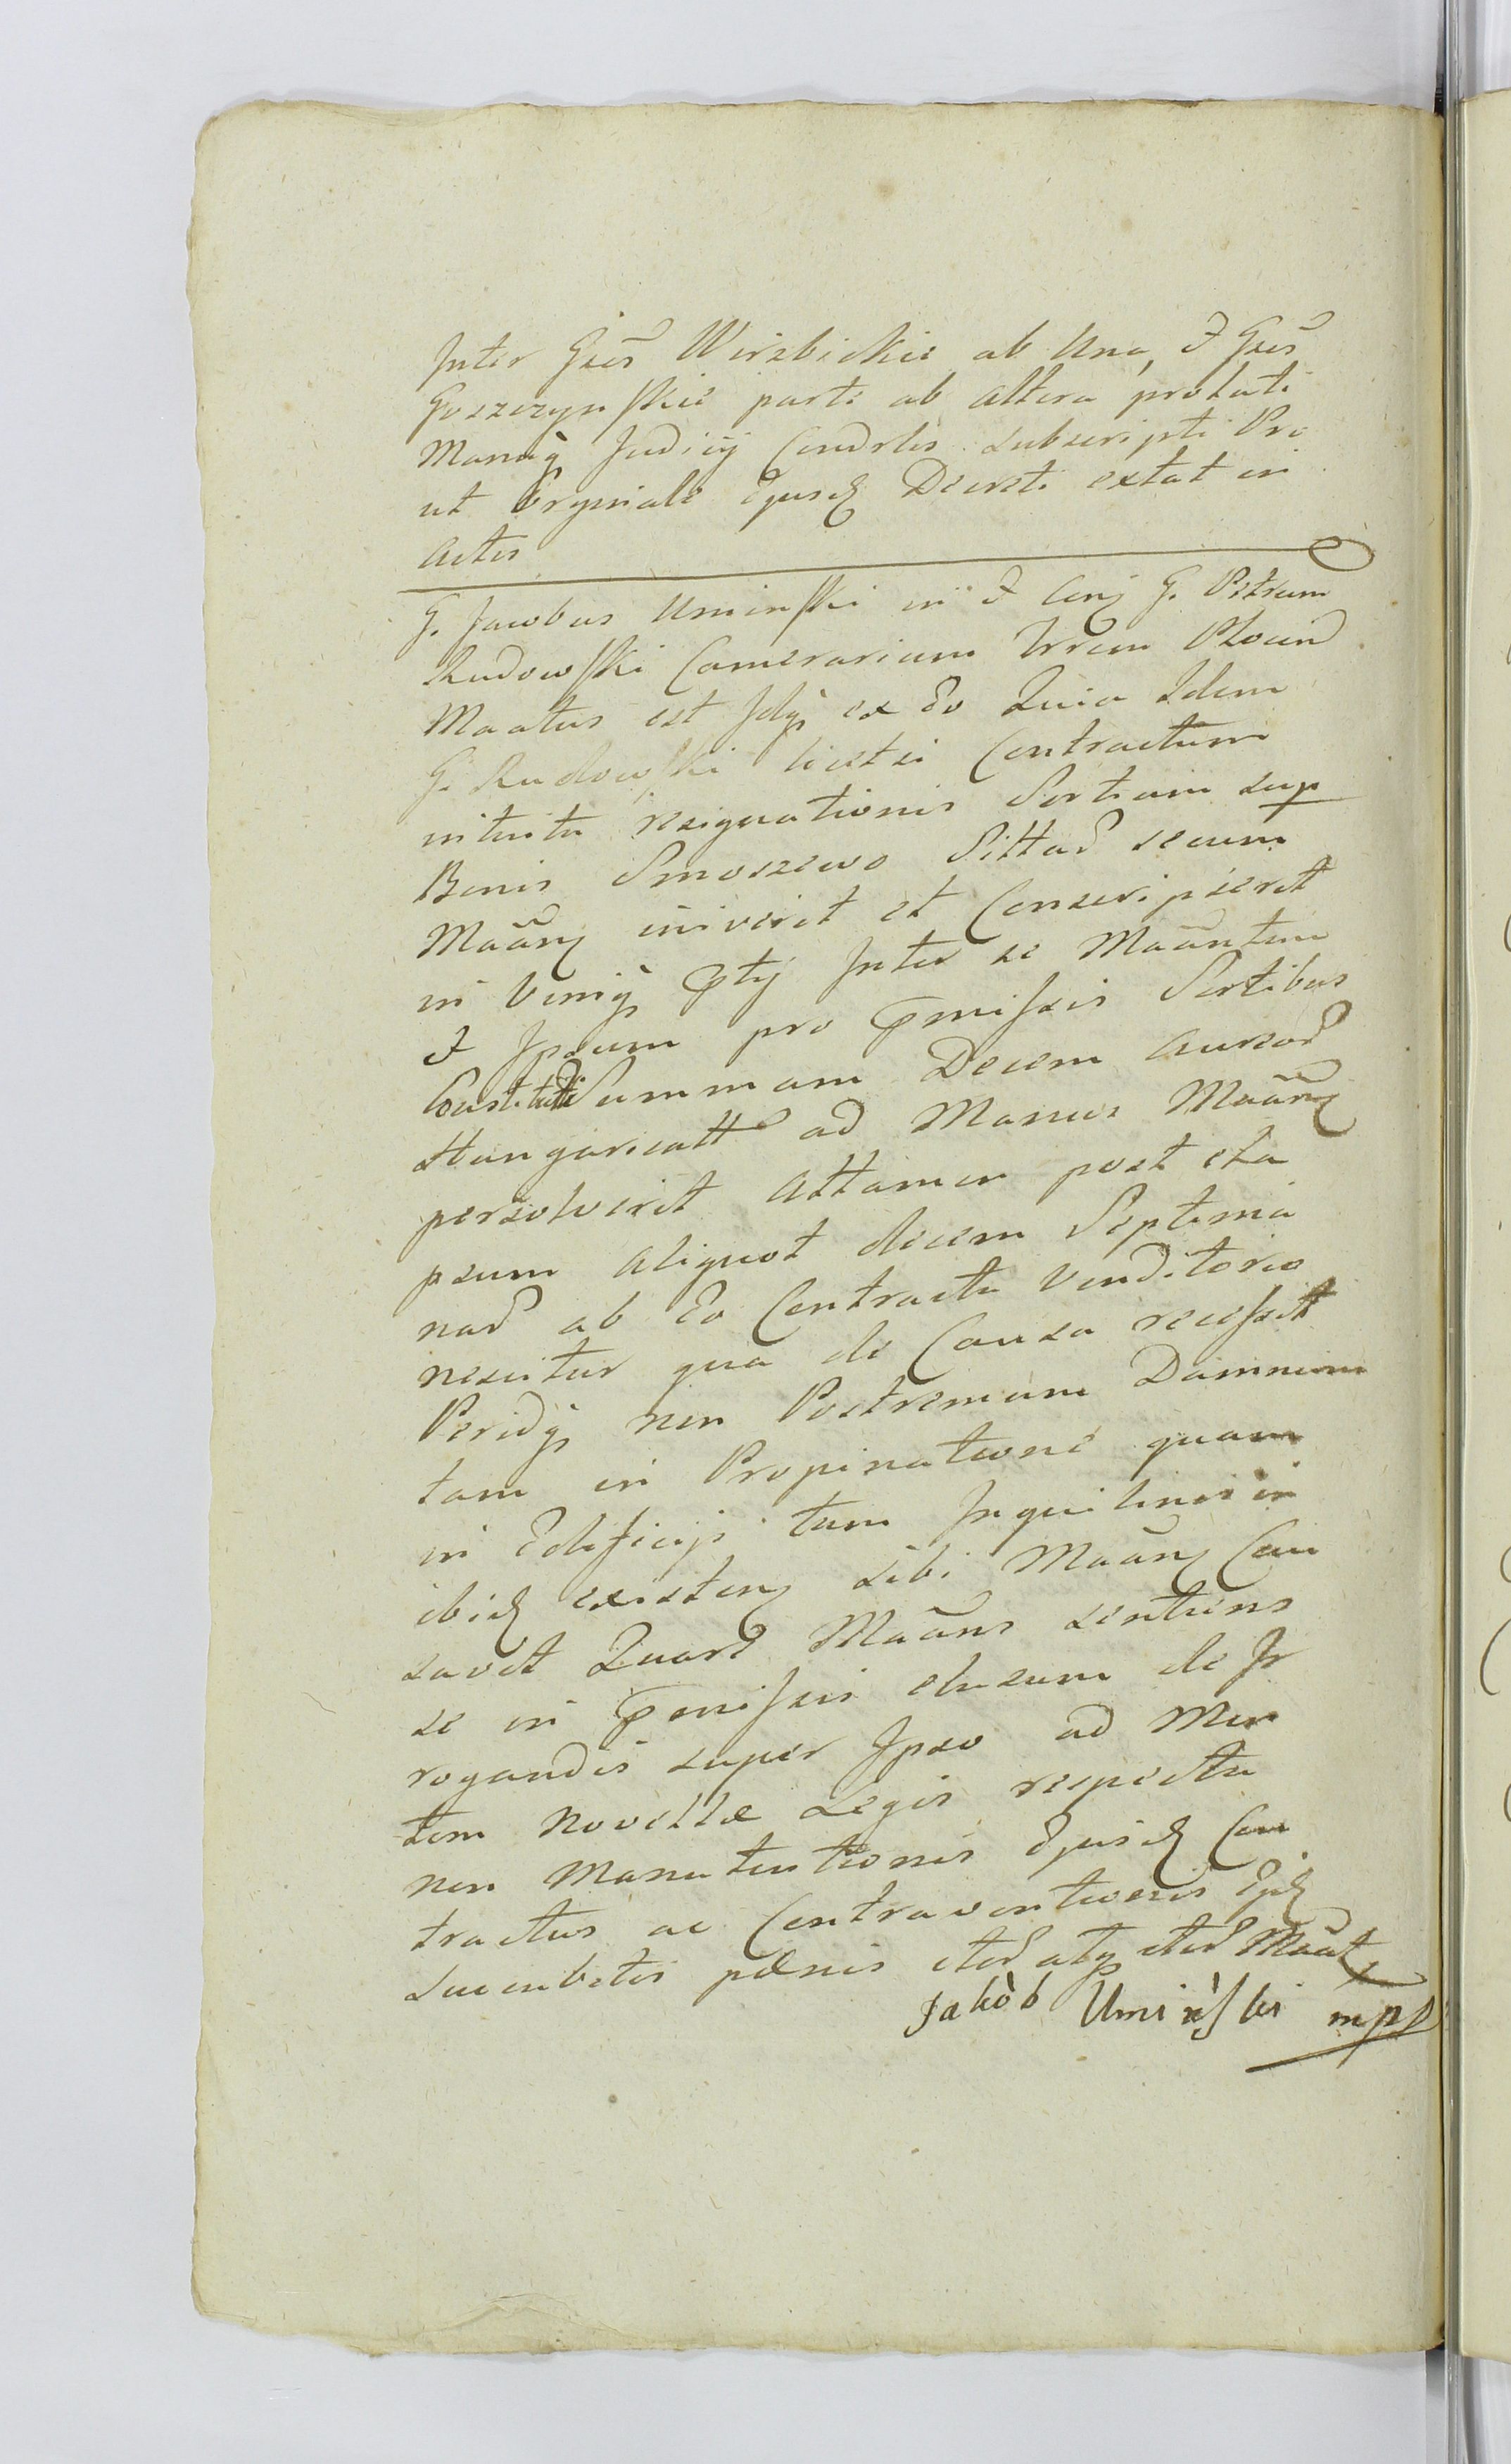 Inter Gsos Wirzbickie ab Una, & Gsos
Goszczynskie parte ab altera prolati
Manuq Judicij Condrlis subscripti Pro
ut Orginale Ejusd Decreti extat in
Actis
G. Jacobus Uminski in & Con G. Petrum
Rudowski Camerarium Trrum Plocen
Maatus est Idq ex Eo Quia Idem
G. Rudowski licet ei Contractum
intuitu resignationis Sortium sup
Bonis Smoszewo Sittar secum
Maan iniverit et Conscripserit
in Vimq Ptij Inter se Maantem
& Ipsum pro Pmissis Sortibus
Constituti Summam Decem Aureor
Hungaricall ad Manus Maan
persolverit Attamen post ela
psum aliquot decem Septima
nar ab Eo Contractu Venditorio
nescitur qua de Causa recessit
Peridq non Postremum Damnum
tam in Propinatione quam
in Edificijs tum Inquilinis in
ibid existen sibi Maan Cau
savit Quare Maans sentiens
se in Pmissis elusum de Ir
rogandis super Ipso ad Men
tem Novellæ Legis respectu
non Manutentionis Ejusd Con
tractus ac Contraventionis Ejd
Succubitis pænis iter atq iter Maat
Jakòb Umiński mpp